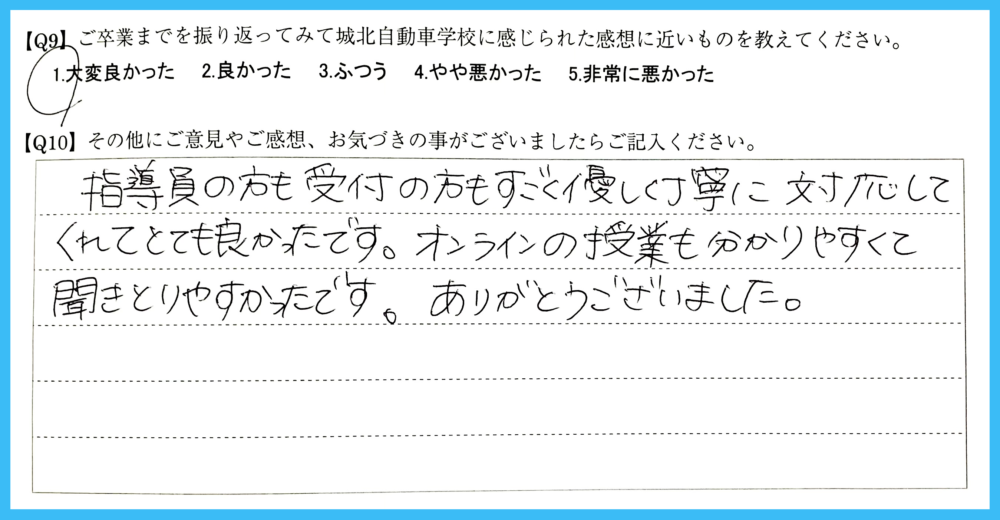 【Q9】ご卒業までを振り返ってみて城北自動車学校に感じられた感想に近いものを教えてください。
1.大変良かった 2.良かった 3.ふつう 4.やや悪かった 5.非常に悪かった
【Q10】その他にご意見やご感想、お気づきの事がございましたらご記入ください。
指導員の方も受付の方もすごく優しく丁寧に対応して
くれてとても良かったです。オンラインの授業も分かりやすくて
聞きとりやすかったです。ありがとうございました。